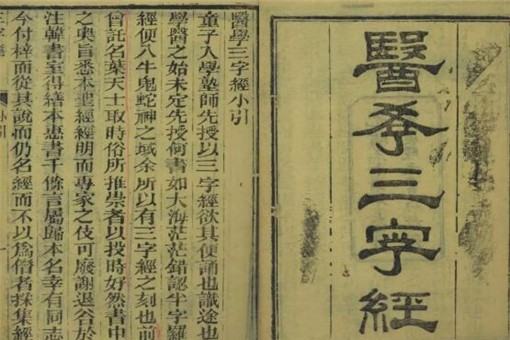 醫學三字經
醫學三字經小引
童子入學塾師先授以三字經欲其便誦也識途也
學醫之始未定先授何書如大海茫茫錯認半字羅
經便入牛鬼蛇神之域余所以有三字經之刻也前
曾託名葉天士取時俗所推崇者以投時好然書中
之奧旨悉本聖經經明而專家之伎可廢謝退谷於
注韓書室得縉本惠書千餘言屬歸本名幸有同志
今付梓而從其說而仍名經而不以爲僭者採集經
小引